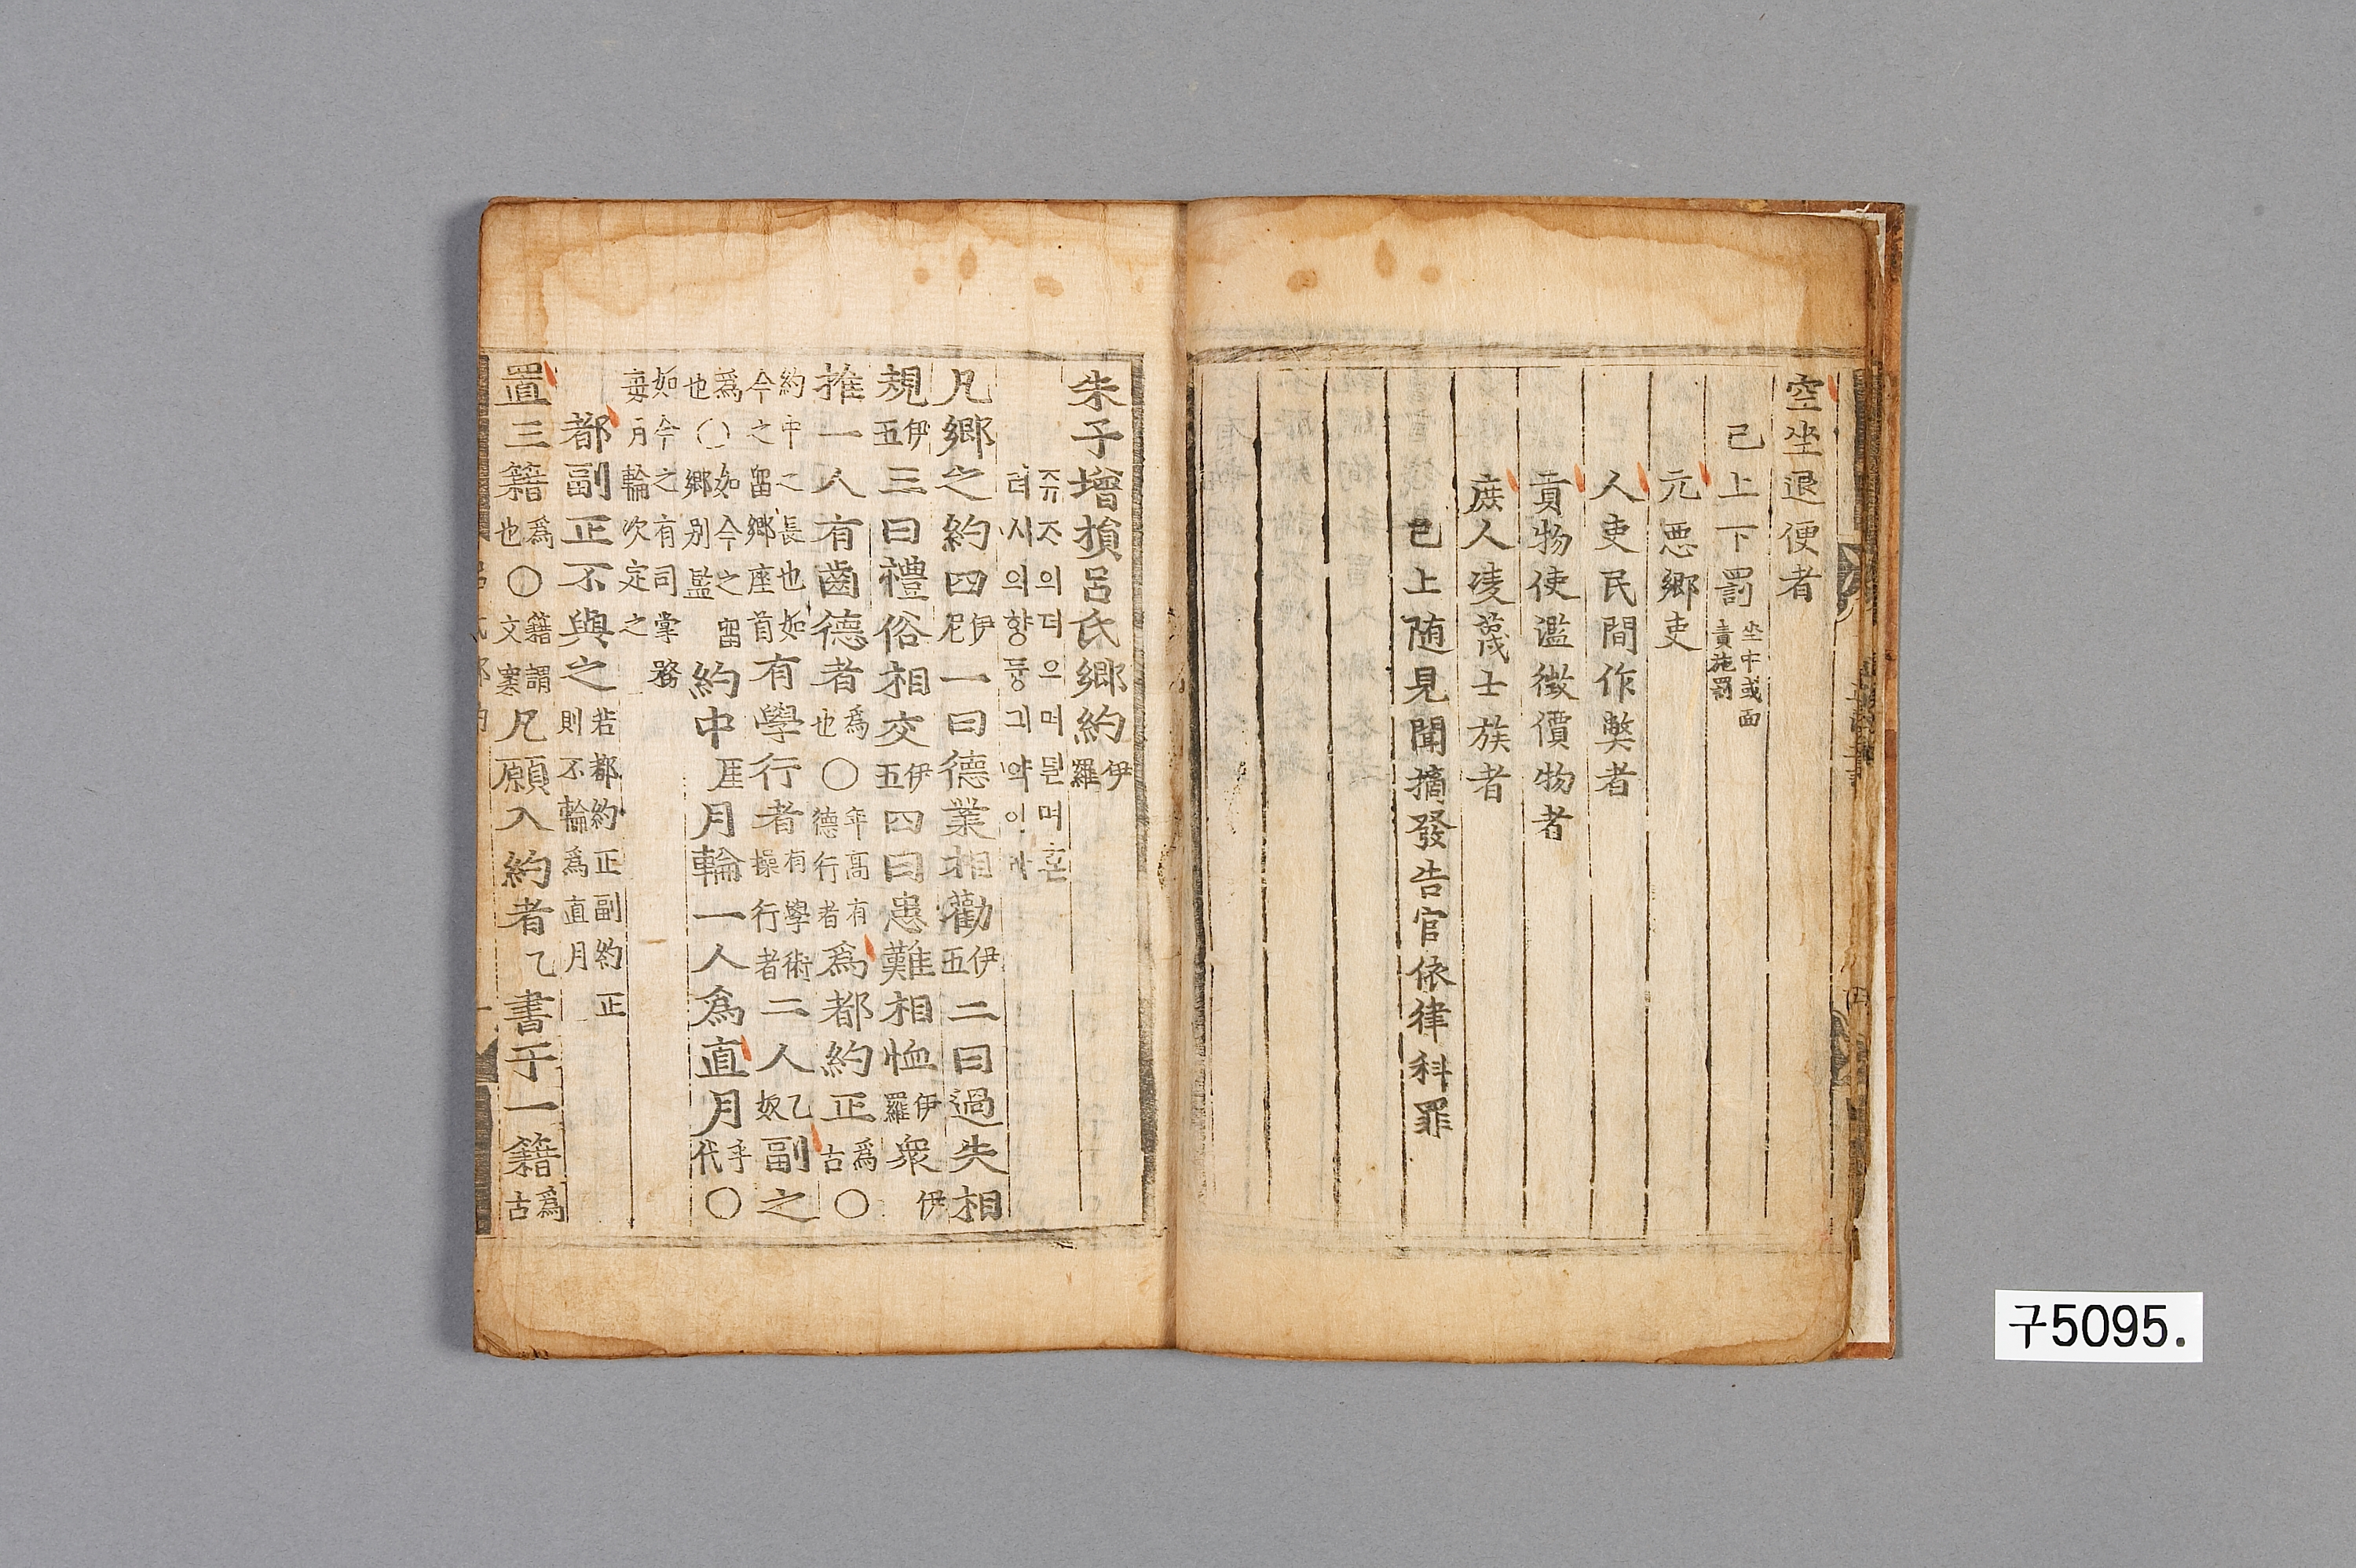 空坐退便者
已上下罰坐中或面責施罰
元惡鄕吏
人吏民間作獘者
貢物使濫徵價物者
庶人凌蔑士族者
已上随見聞摘發告官依律科罪
朱子增損呂氏鄕約伊羅
쥬ᄌᆞ의더으며던며혼
려시의향듕긔약이라
凡鄕之約四伊尼一曰德業相勸伊五二曰過失相
規伊五三曰禮俗相交伊五四曰患難相恤伊羅衆伊
推一人有齒德者爲也○年高有德行者爲都約正爲古○
約中之長也如今之畱鄕座首有學行者有學術操行者二人乙奴副之
爲也○如今之畱鄕別監約中厓月輪一人爲直月乎代○
如今之有司掌務每月輪次定之
都副正不與之若都約正副約正則不輪爲直月
置三籍爲也○籍謂文案凡願入約者乙書于一籍爲古
구5095.